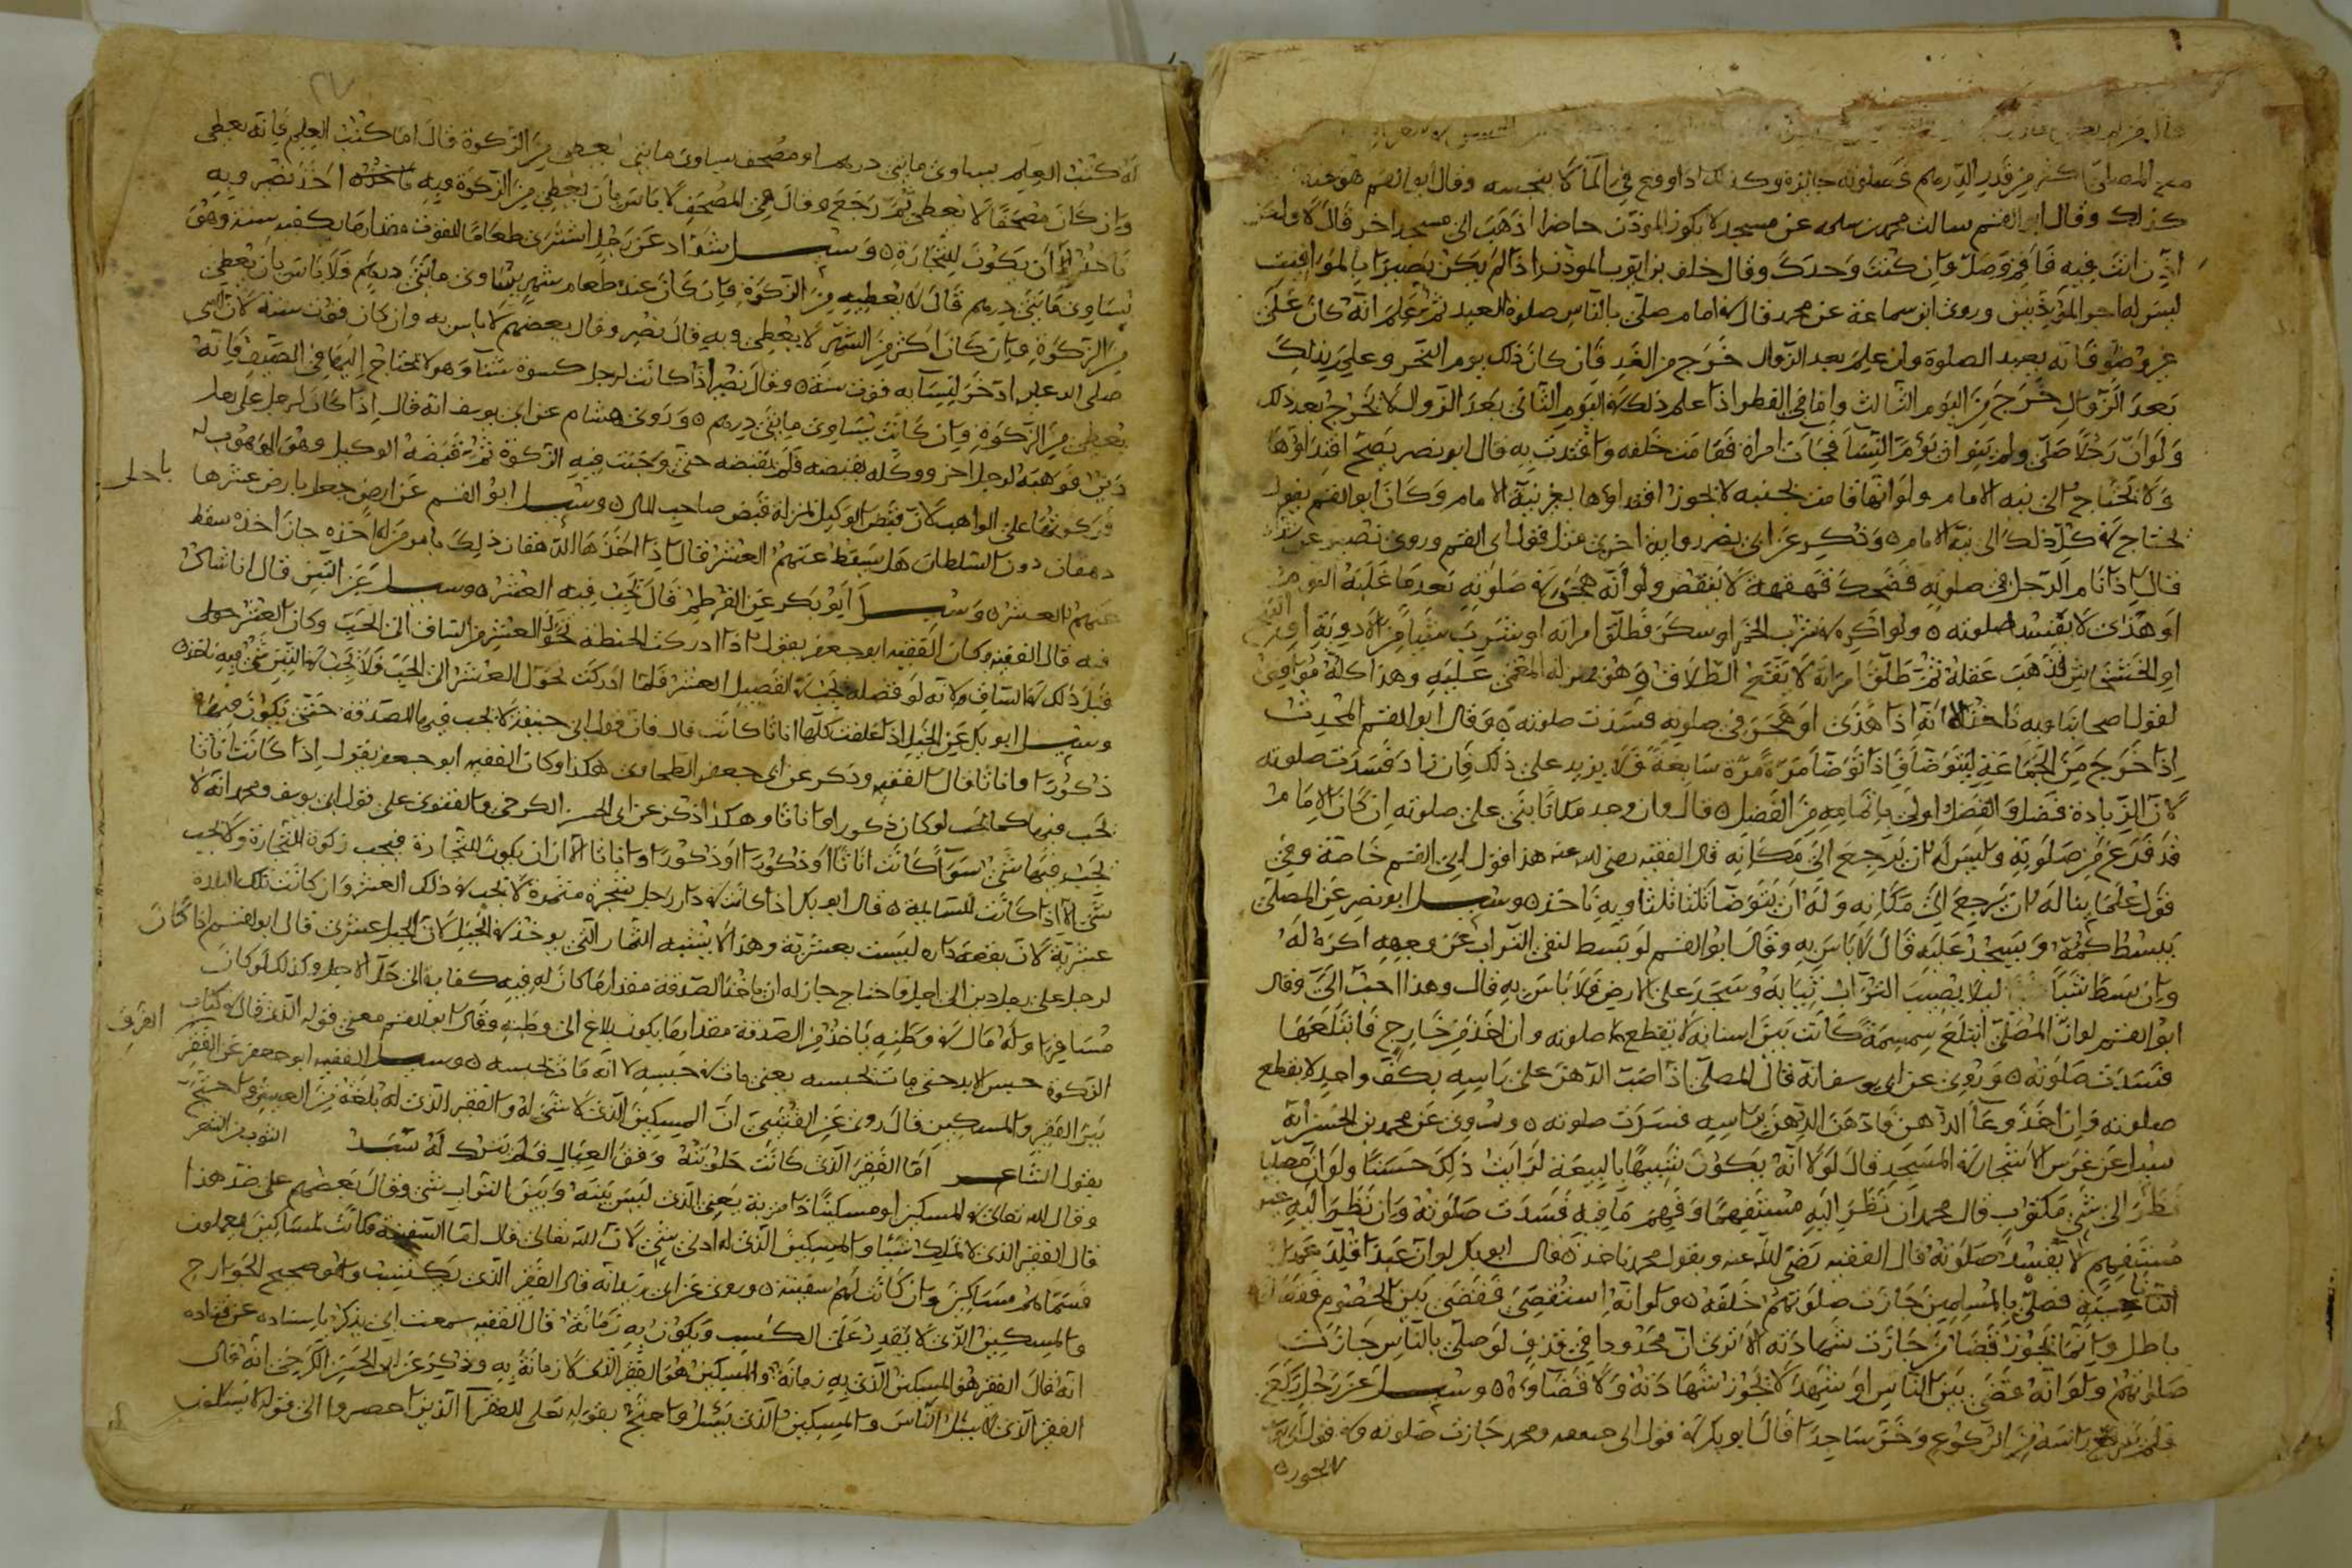 مع المصلى اكثر من قدر الدرهم فصلوته جايزة وكذلك اذا وقع في الماء لا ينجسه وقال ابو القسم هو عندنا
كذلك وقال ابو القسم سالت محمد بن سلمه عن مسجد لا يكون المؤذن حاضرا اذهب الى مسجد اخر قال لا ولكن
اذن انت فيه قاقم وصل وان كنت وحدك وقال خلف بن ايوب المؤذن اذا لم يكن بصيرا بالمواقيت
ليس له اجر المؤذنين وروى ابن سماعة عن محمد قال في امام صلى بالناس صلوة العيد ثم علم انه كان على
غير وضو فانه يعيد الصلوة وان علم بعد الزوال خرج من الغد فان كان ذلك يوم النحر وعلم بذلك
بعد الزوال خرج من اليوم الثالث واما في الفطر اذا علم ذلك في اليوم الثاني بعد الزوال لا يخرج بعد ذلك
ولو ان رجلا صلى ولم ينو ان يؤم النسا فجات امراة فقامت خلفه واقتدت به قال ابو نصر يصح اقتداؤها
ولا تحتاج الى نيه الامام ولو انها قامت بجنبه لا يجوز اقتداوها بغير نية الامام وكان ابو القسم يقول
تحتاج في كل ذلك الى نية الامام وذكر عن ابي نصر رواية اخرى مثل قول ابي القسم وروى نصير عن شداد
قال اذا نام الرجل في صلوته فضحك قهقهة لا ينقض ولو انه هجر في صلوته بعد ما غلبه النوم
او هذى لا يفسد صلوته ولو اكره في شرب الخمر او سكر فطلق امراته او شرب شيا من الادوية او البنج
او الخشخاش فذهب عقله ثم طلق امراته لا يقع الطلاق وهو بمنزلة المغمى عليه وهذا كله موافق
لقول اصحابنا وبه ناخذ الا انه اذا هذى او هجر في صلوته فسدت صلوته وقال ابو القسم المحدث
اذا خرج من الجماعة ليتوضا فاذا توضا مرة مرة سابغة فلا يزيد على ذلك فان زاد فسدت صلوته
لان الزيادة فضل والفضل اولى باتمامه من الفضل قال وان وجد مكانا بنى على صلوته ان كان الامام
قد فرغ من صلوته وليس له ان يرجع الى مكانه قال الفقيه رضي الله عنه هذا قول ابي القسم خاصة وفي
قول علمائنا له ان يرجع الى مكانه وله ان يتوضا ثلثا ثلثا وبه ناخذ وسئل ابو نصر عن المصلى
يبسط كمه ويسجد عليه قال لا باس به وقال ابو القسم لو بسط لنفى التراب عن وجهه اكره له
وان بسط شيا ليلا يصيب التراب ثيابه وسجد على الارض فلا باس به قال وهذا احب الي وقال
ابو القسم لو ان المصلى ابتلع سمسمة كانت بين اسنانه لا يقطع صلوته وان اخذ من خارج فابتلعها
فسدت صلوته وروى عن ابي يوسف انه قال المصلى اذا صب الدهن على راسه بكف واحد لا يقطع
صلوته وان اخذ وعا الدهن فادهن الدهن براسه فسدت صلوته وروى عن محمد بن الحسن انه
سئل عن غرس الاشجار في المسجد قال لولا انه يكون شبيها بالبيعة لرايت ذلك حسنا ولو ان مصليا
نظر الى شي مكتوب قال محمد ان نظر اليه مستفهما وفهم ما فيه فسدت صلوته وان نظر اليه غير
مستفهم لا يفسد صلوته قال الفقيه رضي الله عنه وبقول محمد ناخذ قال ابو بكر لو ان عبدا قلد عمل
الناحية فصلى بالمسلمين جازت صلوتهم خلفه ولو انه استقضى فقضى بين الخصوم فقضاه
باطل وانما يجوز قضا من جازت شهادته الا ترى ان محدودا في قذف لو صلى بالناس جازت
صلوتهم ولو انه قضى بين الناس او شهد لا يجوز شهادته ولا قضاوه وسئل عن رجل ركع
فلم يرفع راسه من الركوع وخر ساجدا قال ابو بكر في قول ابي حنيفه ومحمد جازت صلوته وفي قول ابي يوسف
لا يجوز
له كتب العلم يساوى مايتى درهم او مصحف يساوى مايتى يعطى من الزكوة قال اما كتب العلم فانه يعطى
وان كان مصحفا لا يعطى ثم رجع وقال في المصحف لا باس بان يعطى من الزكوة وبه ناخذ اخذ نصر وبه
ناخذ الا ان يكون للتجارة وسئل شداد عن رجل اشترى طعاما للقوت مقدار ما يكفيه سنة وهو
يساوى مايتى درهم قال لا يعطيه من الزكوة فان كان عنده طعام شهر يساوى مايتى درهم فلا باس بان يعطى
من الزكوة وان كان اكثر من الشهر لا يعطى وبه قال نصر وقال بعضهم لا باس به وان كان قوت سنة لان النبي
صلى الله عليه ادخر لنسآيه قوت سنة وقال نصر اذا كانت لرجل كسوة شتا وهو لا يحتاج اليها في الصيف فانه
يعطى من الزكوة وان كانت يساوى مايتى درهم وروى هشام عن ابي يوسف انه قال اذا كان لرجل على رجل
دين فوهبه لرجل اخر ووكله بقبضه فلم يقبضه حتى وجبت فيه الزكوة ثم قبضه الوكيل وهو الموهوب له
فزكوتها على الواهب لان قبض الوكيل بمنزلة قبض صاحب المال وسئل ابو القسم عن ارض جعل يا رض عشرها
دهقان دون السلطان هل يسقط عنهم العشر قال اذا اخذها الدهقان ذلك بامر من له اخذه جاز اخذه سقط
عنهم العشر وسئل ابو بكر عن القرطم قال يجب فيه العشر وسئل عن التبن قال انا شاك
فيه قال الفقيه وكان الفقيه ابو جعفر يقول اذا ادركت الحنطة تحول العشر من الساق الى الحب وكان العشر
قبل ذلك في الساق لانه لو فصله يجب في القصيل العشر فلما ادركت تحول العشر الى الحب فلا يجب في التبن شي وبه ناخذ
وسئل ابو بكر عن الخيل اذا علفت كلها اناثا كانت قال فان قول ابي حنيفة لا يجب فيها الصدقة حتى تكون فيها
ذكورا واناثا قال الفقيه وذكر عن ابي جعفر الطحاوى هكذا وكان الفقيه ابو جعفر يقول اذا كانت اناثا
تجب فيها كما يجب لو كان ذكورا واناثا وهكذا ذكر عن ابي الحسن الكرخى والفتوى على قول ابي يوسف ومحمد انه لا
يجب فيها شي سوآ كانت اناثا او ذكورا او ذكورا واناثا الا ان يكون للتجارة فيجب زكوة التجارة ولا يجب
شي الا اذا كانت للسايمة قال ابو بكر اذا كانت في دار رجل شجرة مثمرة لا يجب في ذلك العشر وان كانت تلك البلدة
عشرية لان بقعة داره ليست بعشرية وهذا لا يشبه الثمار التي يوخذ في الجبل لان الجبل عشرى قال ابو القسم اذا كان
لرجل على رجل دين الى اجل فاحتاج جاز له ان ياخذ الصدقة مقدار ما كان له فيه كفاية الى حلول الاجل وكذلك لو كان
مسافرا وله مال في وطنه ياخذ من الصدقة مقدار ما يكون بلاغ الى وطنه وقال ابو القسم معنى قوله الذى قال في كتاب
الزكوة حبس الابد حتى مات بحبسه يعنى مات في حبسه لا انه مات بحبسه وسئل الفقيه ابو جعفر عن الفقير
بين الفقير والمسكين قال روى عن القتبى ان المسكين الذى لا شى له والفقير الذى له بلغة من العيش واحتج
بقول الشاعر اما الفقير الذى كانت حلوبته وفق العيال فلم يترك له سبد
وقال الله تعالى في المسكين او مسكينا ذا متربة يعنى الذى ليس بينه وبين التراب شى وقال بعضهم على ضد هذا
قال الفقير الذى لا يملك شيئا والمسكين الذى له ادنى شى لان الله تعالى قال اما السفينة فكانت لمساكين يعملون
فسماهم مساكين وان كانت لهم سفينة وروى عن ابى انه قال الفقير الذى يكتسب وهو صحيح الجوارح
والمسكين الذى لا يقدر على الكسب ويكون به زمانة قال الفقيه سمعت ابى يذكر باسناده عن قتاده
انه قال الفقير هو المسكين الذى به زمانة والمسكين هو الفقير الذى لا زمانة به وذكر عن ابي الحسن الكرخى انه قال
الفقير الذى لا يسئل الناس والمسكين الذى يسئل واحتج بقوله تعلى للفقرآ الذين احصروا الى قوله لا يسئلون